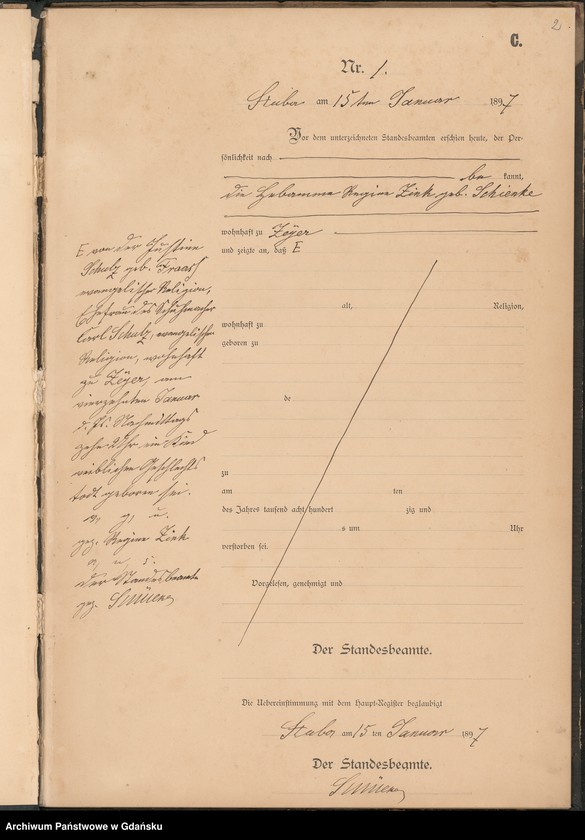 2
C.
Nr. 1.
Stuba am 15ten Januar 1897
Vor dem unterzeichneten Standesbeamten erschien heute, der Per-
sönlichkeit nach
be kannt,
die Hebamme Regine Zink geb. Schienke
wohnhaft zu Zeyer
und zeigte an, daß E
E von der Justine
Schulz geb. Fraas
evangelischer Religion,
Ehefrau des Schuhmacher
Carl Schulz, evangelischer
Religion, wohnhaft
zu Zeyer, am
vierzehnten Januar
d. Js. Nachmittags
zehn Uhr ein Kind
weiblichen Geschlechts
todt geboren sei.
v. g. u.
gez. Regine Zink
Der Standesbeamte
gez.
alt, Religion,
wohnhaft zu
geboren zu
de
zu
am ten
des Jahres tausend acht hundert zig und
s um Uhr
verstorben sei.
Vorgelesen, genehmigt und
Der Standesbeamte.
Die Uebereinstimmung mit dem Haupt-Register beglaubigt
Stuba am 15 ten Januar 1897
Der Standesbeamte.
Archiwum Państwowe w Gdańsku